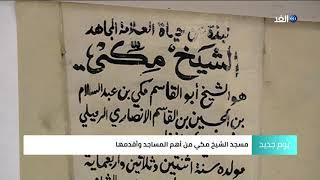 الغد
نبذة من حياة العلامة المجاهد
الشيخ مكي
هو الشيخ أبو القاسم مكي بن عبد السلام
بن الحسين بن القاسم الأنصاري الرميلي
يوم جديد
مسجد الشيخ مكي من أهم المساجد وأقدمها
مولده سنة اثنتين وثلاثين وأربعماية